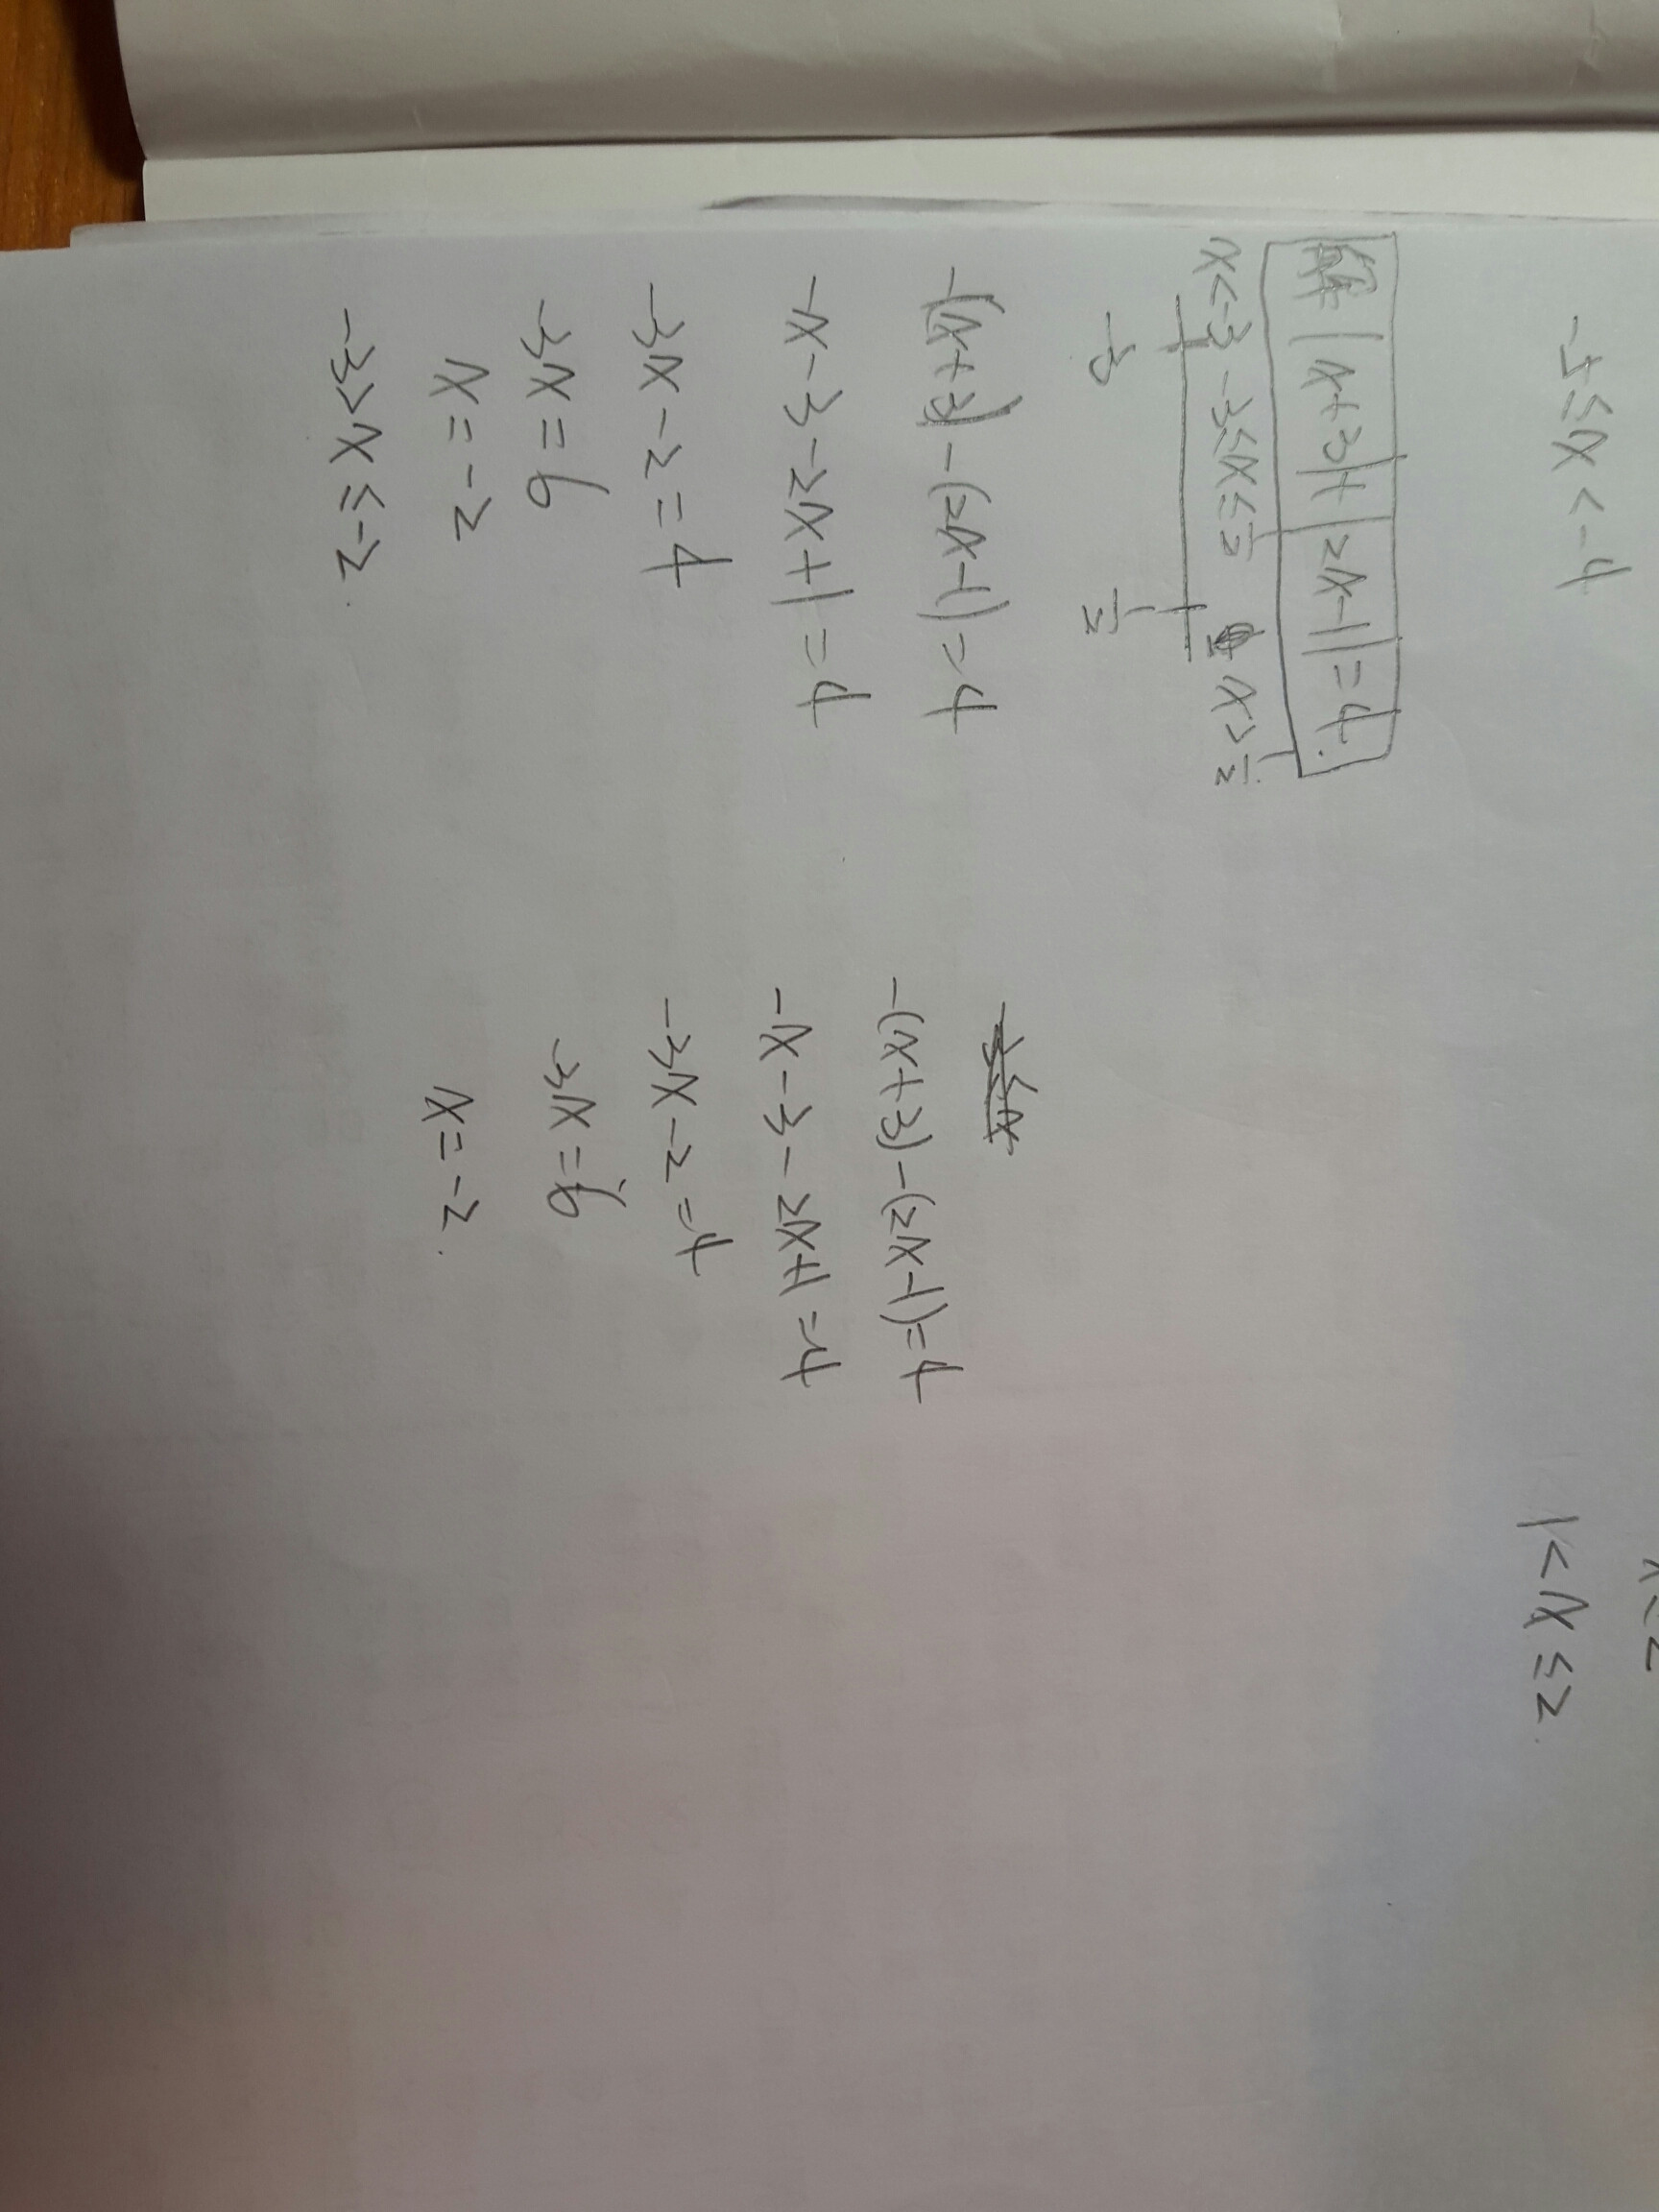 -5≤x<-4
x≥2
1<x≤2.
解 |x+3|+|2x-1|=4.
x<-3 -3≤x≤1/2 x>1/2.
-3 1/2
-(x+3)-(2x-1)=4
-x-3-2x+1=4
-3x-2=4
-3x=6
x=-2
-3>x≤-2.
-(x+3)-(2x-1)=4
-x-3-2x+1=4
-3x-2=4
-3x=6
x=-2.